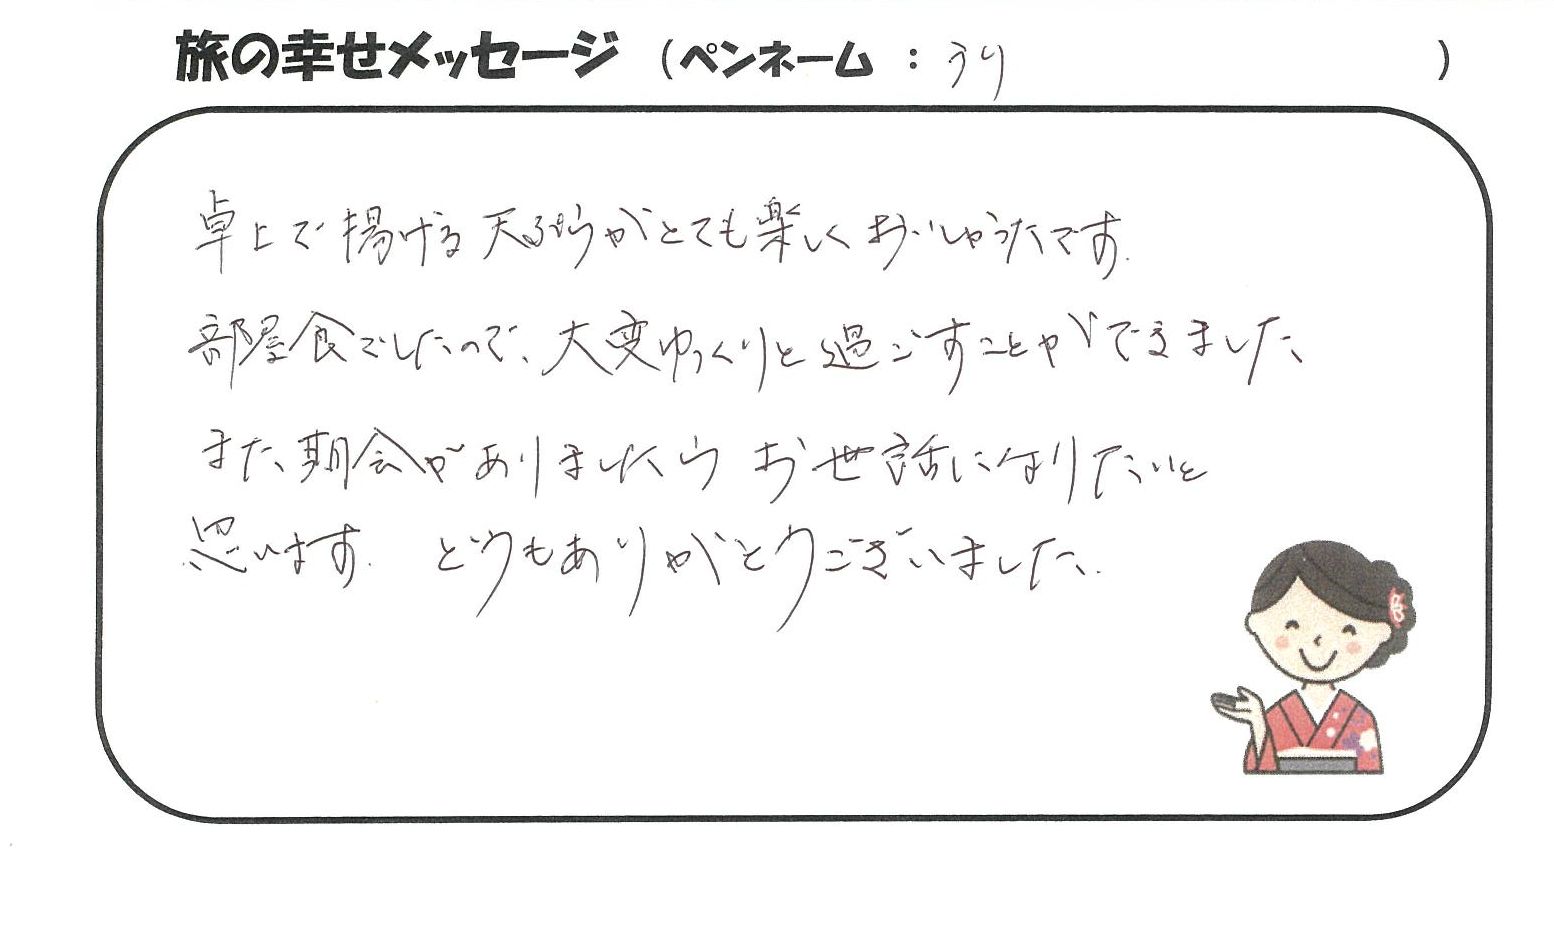 旅の幸せメッセージ （ペンネーム ： うり ）
卓上で揚げる天ぷらがとても楽しくおいしかったです.
部屋食でしたので、大変ゆっくりと過ごすことができました、
また、期会がありましたら お世話になりたいと
思います. どうもありがとうございました.